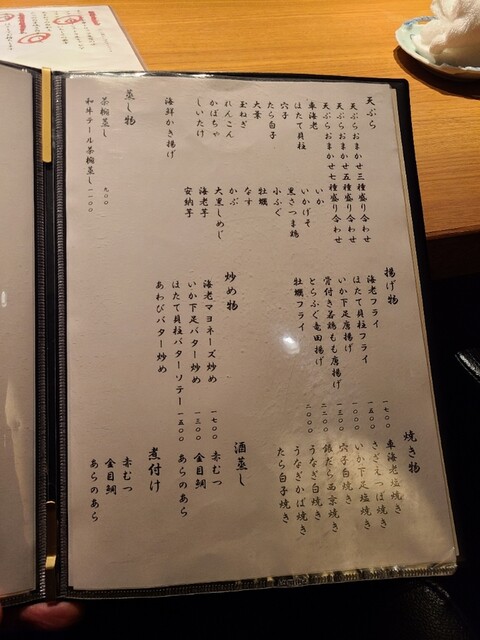 天ぷら
天ぷらおまかせ三種盛り合わせ
天ぷらおまかせ五種盛り合わせ
天ぷらおまかせ七種盛り合わせ
車海老
いか
はたて貝柱
いかげそ
穴子
黒さつま鶏
たら白子
小ふぐ
大葉
牡蠣
玉ねぎ
なす
れんこん
かぶ
かぼちゃ
大黒しめじ
しいたけ
海老芋
安納芋
海鮮かき揚げ
蒸し物
茶椀蒸し 九〇〇
和牛テール茶椀蒸し 一一〇〇
揚げ物
海老フライ 一七〇〇
ほたて貝柱フライ 一五〇〇
いか下足唐揚げ 一一〇〇
骨付き若鶏もも唐揚げ 一三〇〇
とらふぐ竜田揚げ 二二〇〇
牡蠣フライ 二〇〇〇
炒め物
海老マヨネーズ炒め 一七〇〇
いか下足バター炒め 一三〇〇
ほたて貝柱バターソテー 一五〇〇
あわびバター炒め
焼き物
車海老塩焼き
さざえつぼ焼き
いか下足塩焼き
穴子白焼き
銀だら西京焼き
うなぎ白焼き
うなぎかば焼き
たら白子焼き
酒蒸し
赤むつ
金目鯛
あらのあら
煮付け
赤むつ
金目鯛
あらのあら